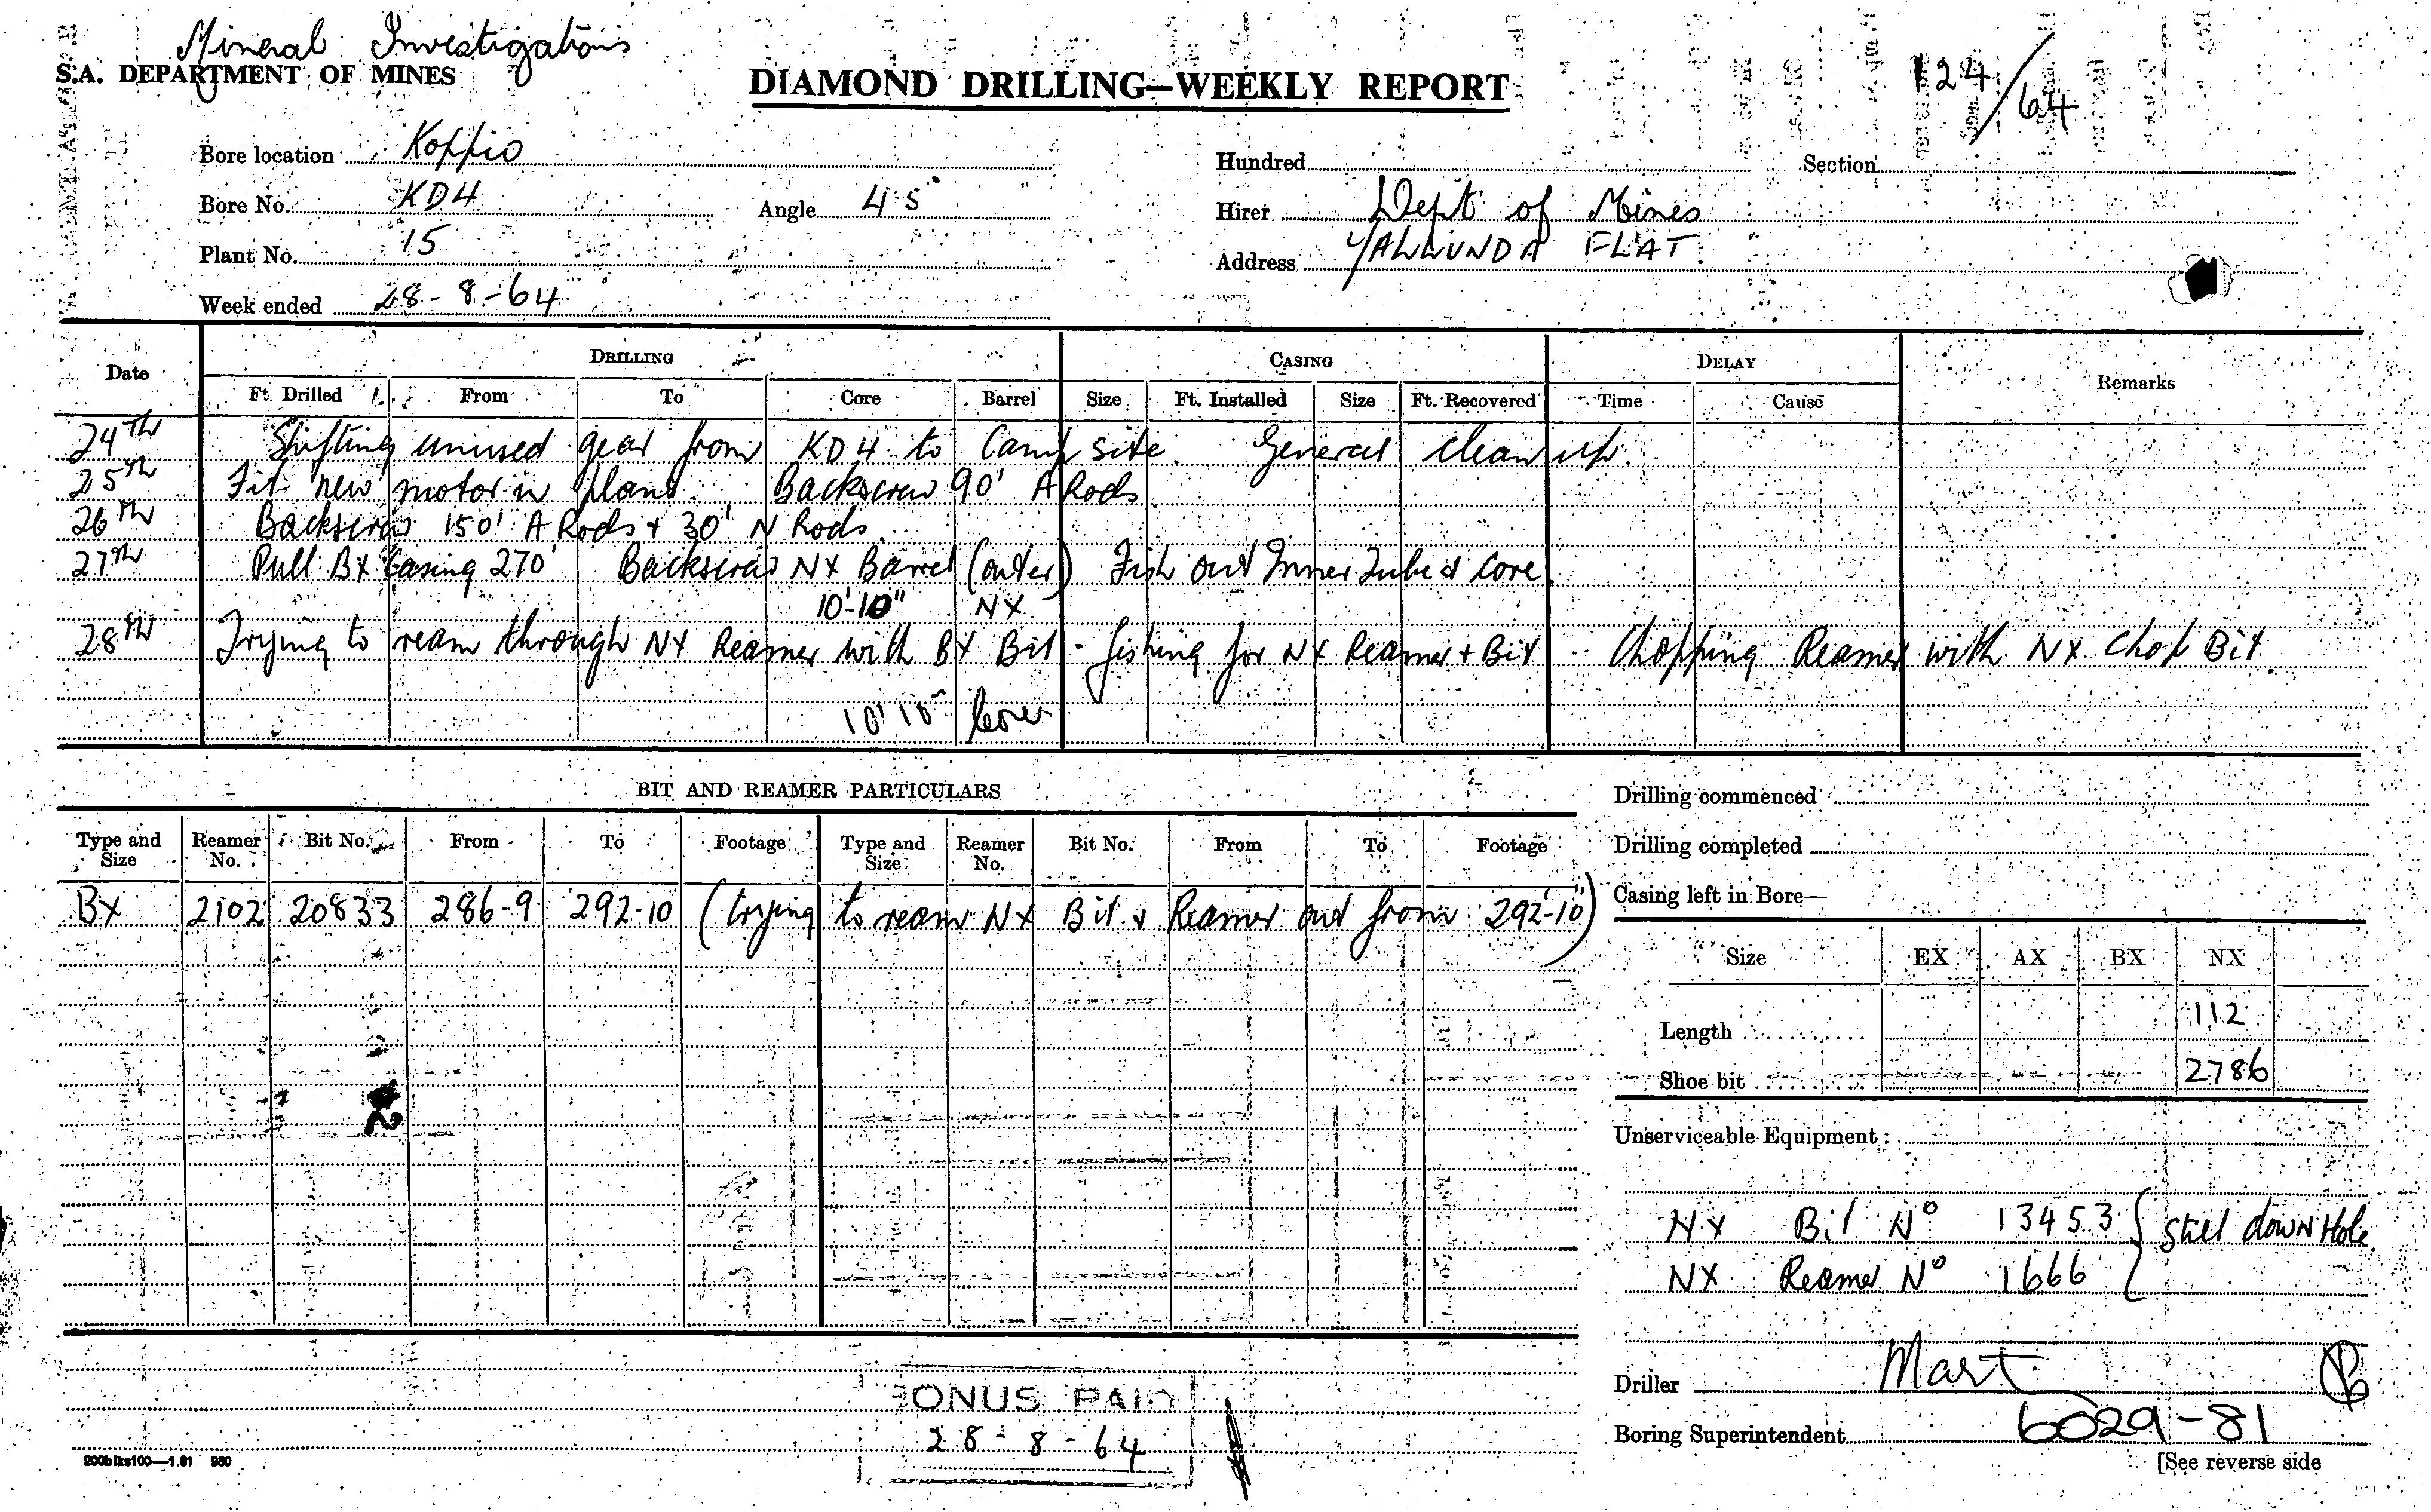 Mineral Investigations
S.A. DEPARTMENT OF MINES
DIAMOND DRILLING—WEEKLY REPORT
124/64
Bore location Koppio
Hundred
Section
Bore No. KD4
Angle 45°
Hirer Dept of Mines
Plant No. 15
Address YALLUNDA FLAT
Week ended 28-8-64
Date
DRILLING
CASING
DELAY
Remarks
Ft. Drilled From To Core Barrel Size Ft. Installed Size Ft. Recovered Time Cause
24th Shifting unused gear from KD4 to Camp site. General clean up.
25th Fit new motor in plant. Backscrew 90' A Rods
26th Backscrew 150' A Rods + 30' N Rods
27th Pull BX Casing 270' Backscrew NX Barrel (outer) Fish out Inner Tube & Core
10'-10" NX
28th Trying to ream through NX Reamer with BX Bit - fishing for NX Reamer + Bit - Chopping Reamer with NX Chop Bit.
10'10" core
BIT AND REAMER PARTICULARS
Type and Size Reamer No. Bit No. From To Footage Type and Size Reamer No. Bit No. From To Footage
BX 2102 20833 286-9 292-10 (trying to ream NX Bit & Reamer out from 292'-10")
Drilling commenced
Drilling completed
Casing left in Bore—
Size EX AX BX NX
Length 112
Shoe bit 2786
Unserviceable Equipment:
NX Bit No 13453 } Still down Hole
NX Reamer No 1666
BONUS PAID
28-8-64
Driller Mart
Boring Superintendent
6029-81
[See reverse side
200blks100—1.61 980